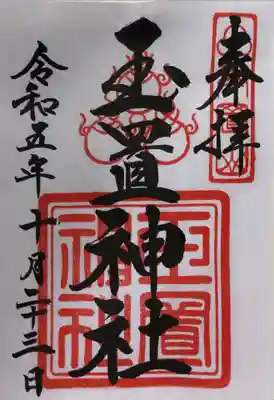 奉拝
玉置神社
令和五年十月二十三日
玉置
神社